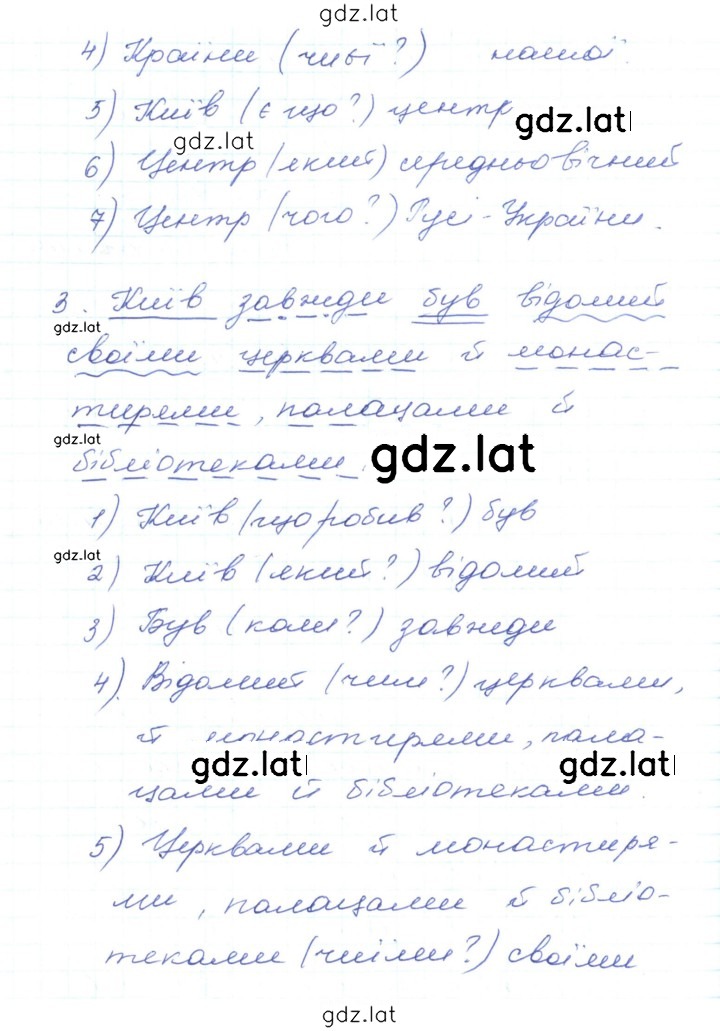 gdz.lat
4) Країни (чиєї?) нашої.
5) Київ (є що?) центр
gdz.lat
gdz.lat
6) Центр (який) середньовічний
7) Центр (чого?) Русі-України.
3. Київ завжди був відомий
gdz.lat
своїми церквами й монас-
тирями, палацами й
gdz.lat
бібліотеками.
gdz.lat
1) Київ (що робив?) був
gdz.lat
2) Київ (який?) відомий
3) Був (коли?) завжди
4) Відомий (чим?) церквами,
й монастирями, пала-
gdz.lat
gdz.lat
цами й бібліотеками.
5) Церквами й монастиря-
ми, палацами й бібліо-
теками (чиїми?) своїми
gdz.lat